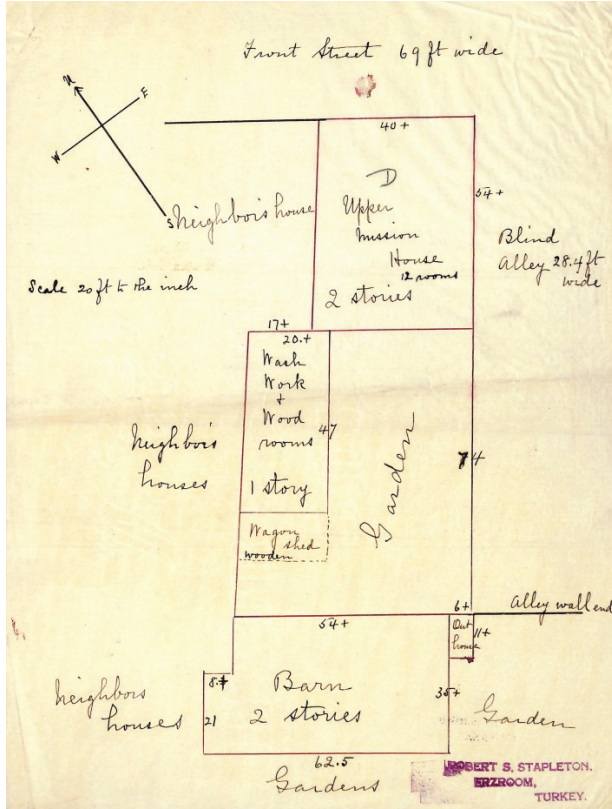 Front Street 69 ft wide
N
E
W
S
40+
D
Upper
Mission
House
12 rooms
2 stories
54+
Neighbois house
Blind
Alley 28.4 ft
wide
Scale 20 ft to the inch
17+
20.+
Wash
Work
+
Wood
rooms
1 story
47
Neighbois
houses
Garden
74
Wagon
shed
wooden
54+
6+
Alley wall end
Out
house
11+
8.+
21
Barn
2 stories
35+
Neighbois
houses
Garden
62.5
Gardens
ROBERT S. STAPLETON.
ERZROOM,
TURKEY.